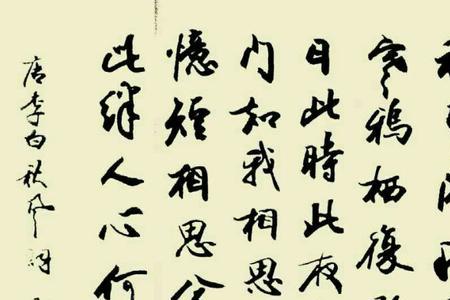 寒鴉栖復
日此時此夜
门知我相思
憶短相思兮
此絆人心何
唐李白秋風詞